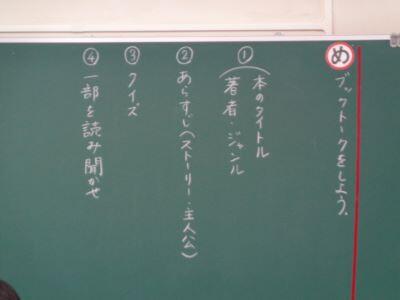 め
ブックトークをしよう。
① 本のタイトル
(著者・ジャンル
② あらすじ(ストーリー・主人公)
③ クイズ
④ 一部を読み聞かせ